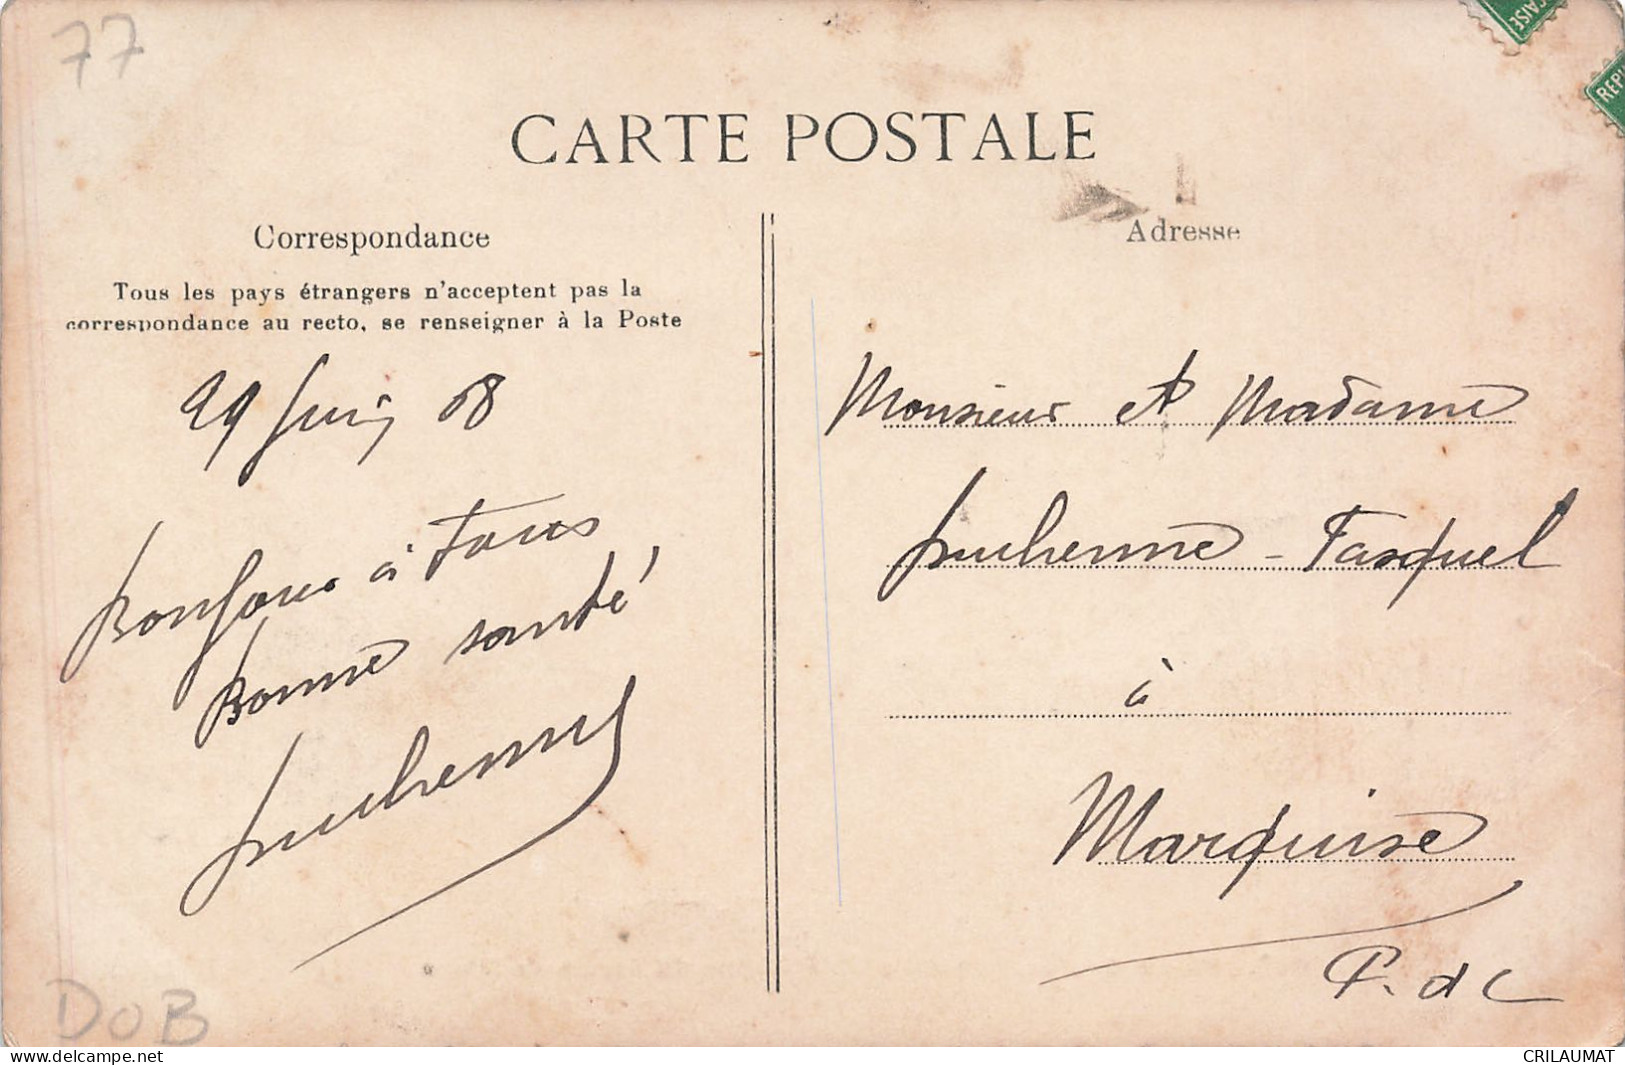 77
CAISE
REPU
CARTE POSTALE
Correspondance
Tous les pays étrangers n'acceptent pas la
correspondance au recto, se renseigner à la Poste
29 Juin 08
Bonjour à Tous
Bonne santé
Duchenne
Adresse
Monsieur et Madame
Duchenne - Fasquel
à
Marquise
P. d C
DOB
delcampe.net
CRILAUMAT